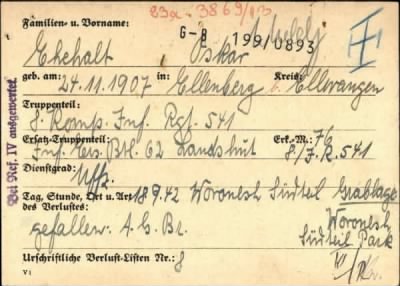 23a. 3869/13
Familien- u. Vorname:
G-B 199/0893
Ehehalt Oskar
geb. am: 24.11.1907 in: Ellenberg Kreis: Ellwangen
Truppenteil:
8. Komp. Inf. Rgt. 541
Ersatz-Truppenteil: Erk.-M.: 76
Inf. Ers. Btl. 62 Landshut 8/J.R. 541
Dienstgrad:
Uffz.
Tag, Stunde, Ort u. Art 18.9.42 Woronesh Südteil Grablage
des Verlustes: Woronesh
gefallen: A.G. Br. Südteil Park
Urschriftliche Verlust-Listen Nr.: 8
V1
Bei Ref. IV ausgewertet.